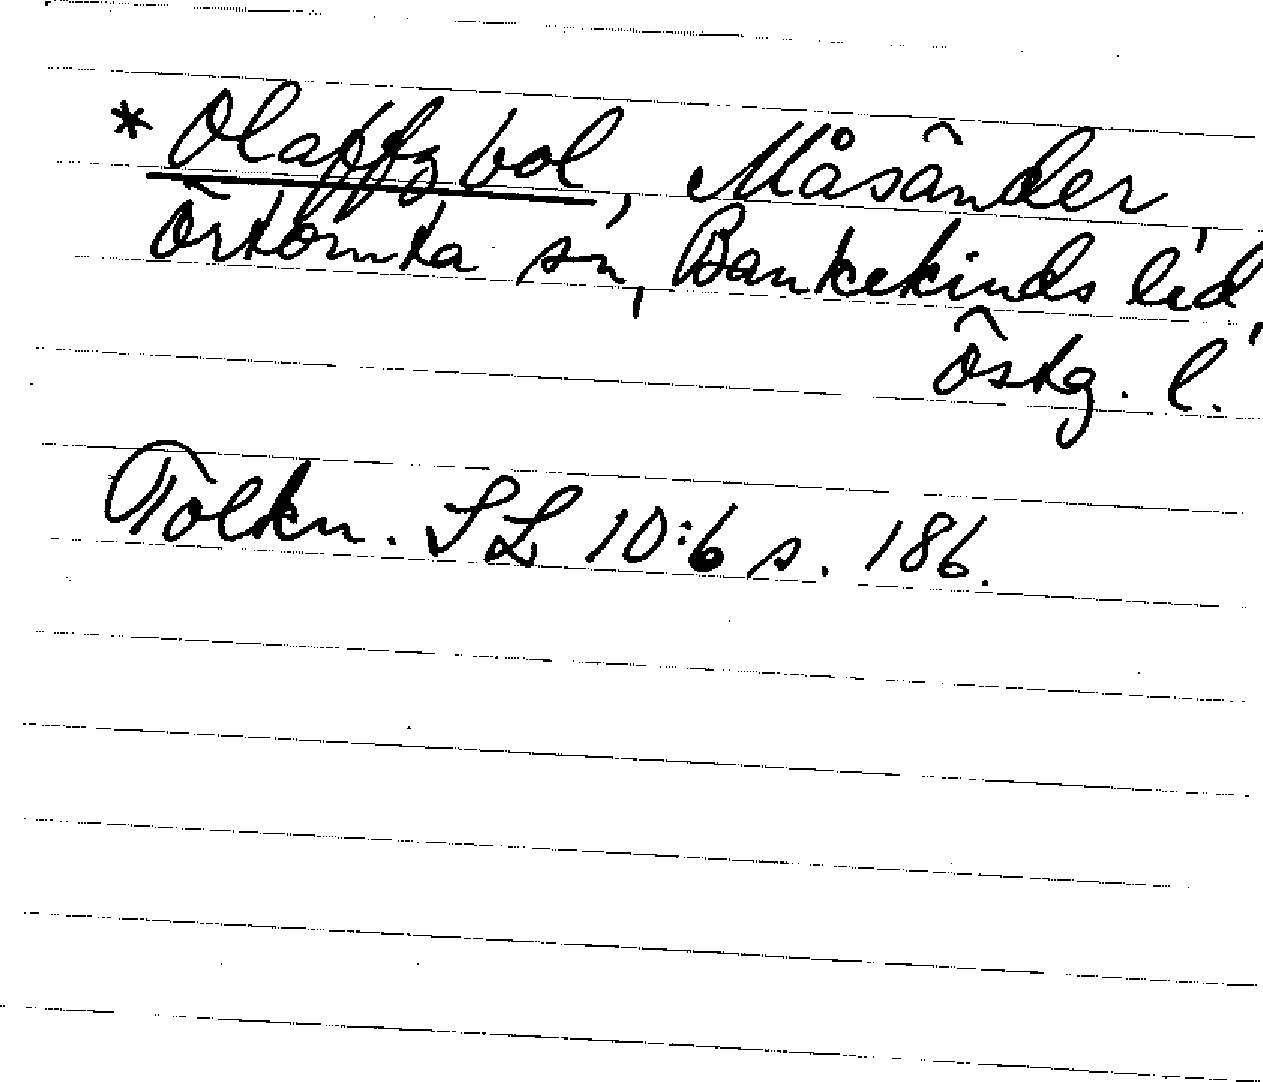 * Olaffg bol, Måsänder,
Örtomta sn, Bankekinds lid,
Östg. l.
Tolkn. SL 10:6 s. 186.